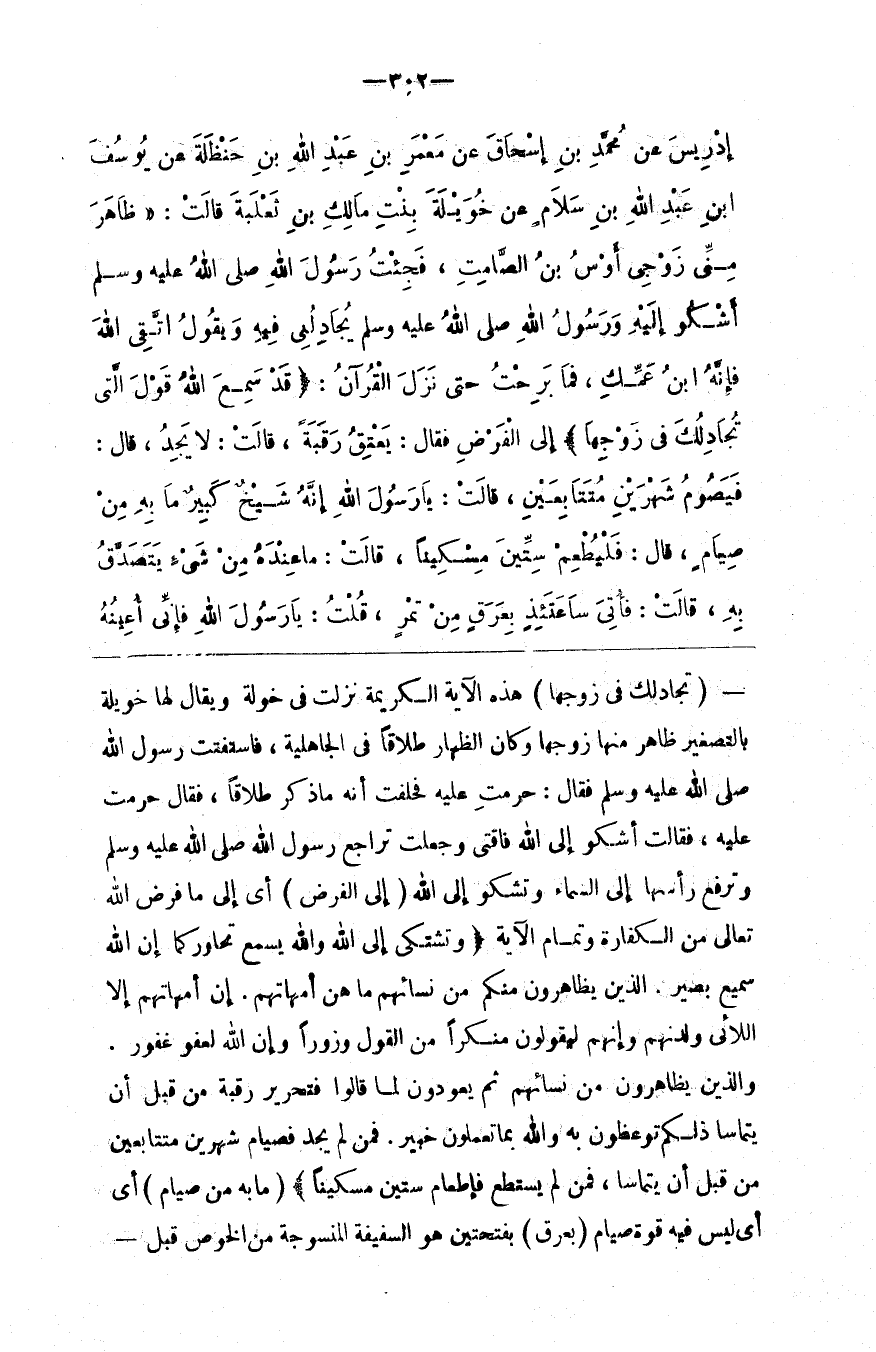 —٣٠٢—
إِدْرِيسَ عن مُحَمَّدِ بنِ إِسْحَاقَ عن مَعْمَرِ بنِ عَبْدِ اللهِ بنِ حَنْظَلَةَ عن يُوسُفَ
ابنِ عَبْدِ اللهِ بنِ سَلَامٍ عن خُوَيْلَةَ بِنْتِ مالِكِ بنِ ثَعْلَبَةَ قالَتْ : « ظَاهَرَ
مِنِّى زَوْجِى أَوْسُ بنُ الصَّامِتِ ، فَجِئْتُ رَسُولَ اللهِ صلى اللهُ عليه وسلم
أَشْكُو إِلَيْهِ وَرَسُولُ اللهِ صلى اللهُ عليه وسلم يُجَادِلُنِى فِيهِ وَيقُولُ اتَّقِى اللهَ
فإِنَّهُ ابنُ عَمِّكِ ، فمَا بَرِحْتُ حتى نَزَلَ الْقُرآنُ : ﴿ قَدْ سَمِعَ اللهُ قَوْلَ الَّتِى
تُجَادِلُكَ فى زَوْجِهاَ ﴾ إلى الْفَرْضِ فقال : يَعْتِقُ رَقَبَةً ، قالَتْ : لا يَجِدُ ، قال :
فَيَصُومُ شَهْرَيْنِ مُتَتَابِعَيْنِ ، قالَتْ : يَارَسُولَ اللهِ إنَّهُ شَيْخٌ كَبِيرٌ مَا بِهِ مِنْ
صِيَامٍ ، قال : فَلْيُطْعِمْ سِتِّينَ مِسْكِيناً ، قالَتْ : ماعِنْدَهُ مِنْ شَىْءٍ يَتَصَدَّقُ
بِهِ ، قالَتْ : فأُتِىَ ساعَتَئِذٍ بِعَرَقٍ مِنْ تمْرٍ ، قُلْتُ : يَارَسُولَ اللهِ فإِنِّى أُعِينُهُ
— ( تجادلك فى زوجها ) هذه الآية الكريمة نزلت فى خولة ويقال لها خويلة
بالتصغير ظاهر منها زوجها وكان الظهار طلاقاً فى الجاهلية ، فاستفتت رسول الله
صلى الله عليه وسلم فقال : حرمتِ عليه فحلفت أنه ماذكر طلاقاً ، فقال حرمت
عليه ، فقالت أشكو إلى الله فاقتى وجعلت تراجع رسول الله صلى الله عليه وسلم
وترفع رأسها إلى السماء وتشكو إلى الله ( إلى الفرض ) أى إلى ما فرض الله
تعالى من الكفارة وتمام الآية ﴿ وتشتكى إلى الله والله يسمع تحاوركما إن الله
سميع بصير . الذين يظاهرون منكم من نسائهم ما هن أمهاتهم . إن أمهاتهم إلا
اللائى ولدنهم وإنهم ليقولون منكراً من القول وزوراً وإن الله لعفو غفور .
والذين يظاهرون من نسائهم ثم يعودون لما قالوا فتحرير رقبة من قبل أن
يتماسا ذلكم توعظون به والله بما تعملون خبير . فمن لم يجد فصيام شهرين متتابعين
من قبل أن يتماسا ، فمن لم يستطع فإطعام ستين مسكيناً ﴾ ( مابه من صيام ) أى
أى ليس فيه قوة صيام ( بعرق ) بفتحتين هو السفيفة المنسوجة من الخوص قبل —